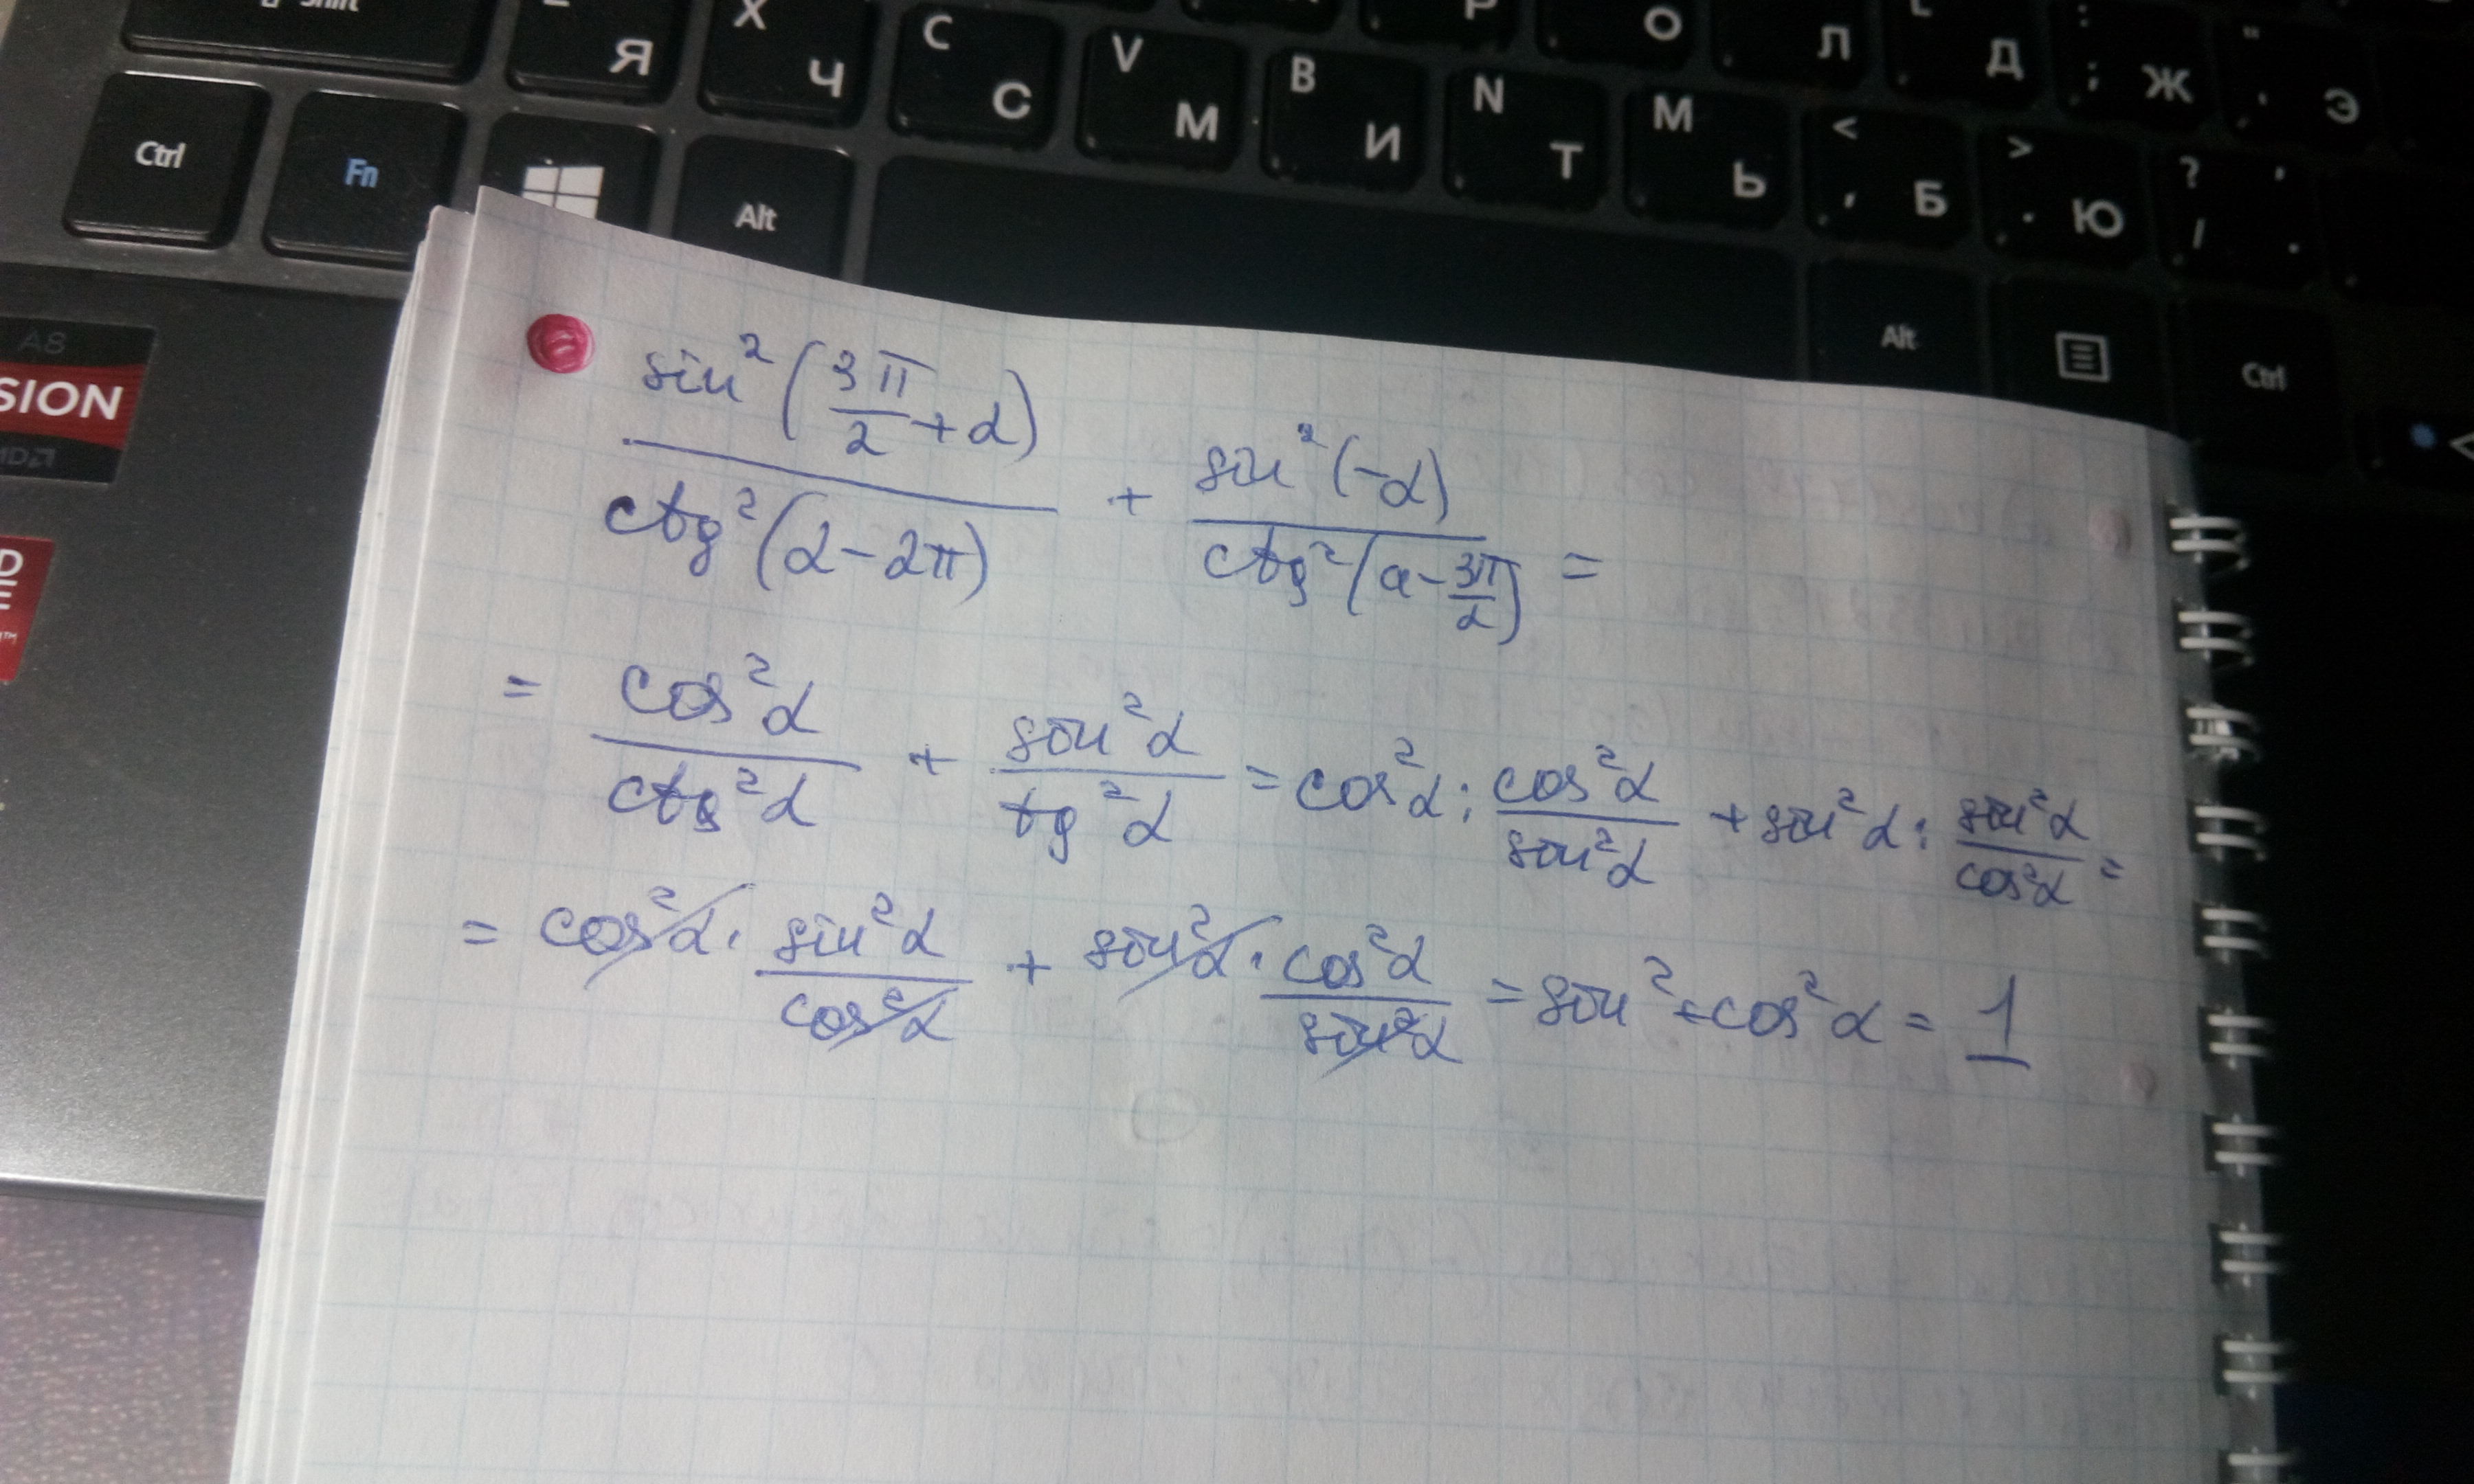 Shift
Я X Ч C С V М B И N Т M Ь < , Б > . Ю ? / , .
P О Л Д : ; Ж " ' Э
Ctrl Fn Alt Alt Ctrl
A8
SION
sin²(3π/2+α)/ctg²(α-2π) + sin²(-α)/ctg²(a-3π/2) =
= cos²α/ctg²α + sin²α/tg²α = cos²α : cos²α/sin²α + sin²α : sin²α/cos²α =
= cos²α · sin²α/cos²α + sin²α · cos²α/sin²α = sin²+cos²α = 1